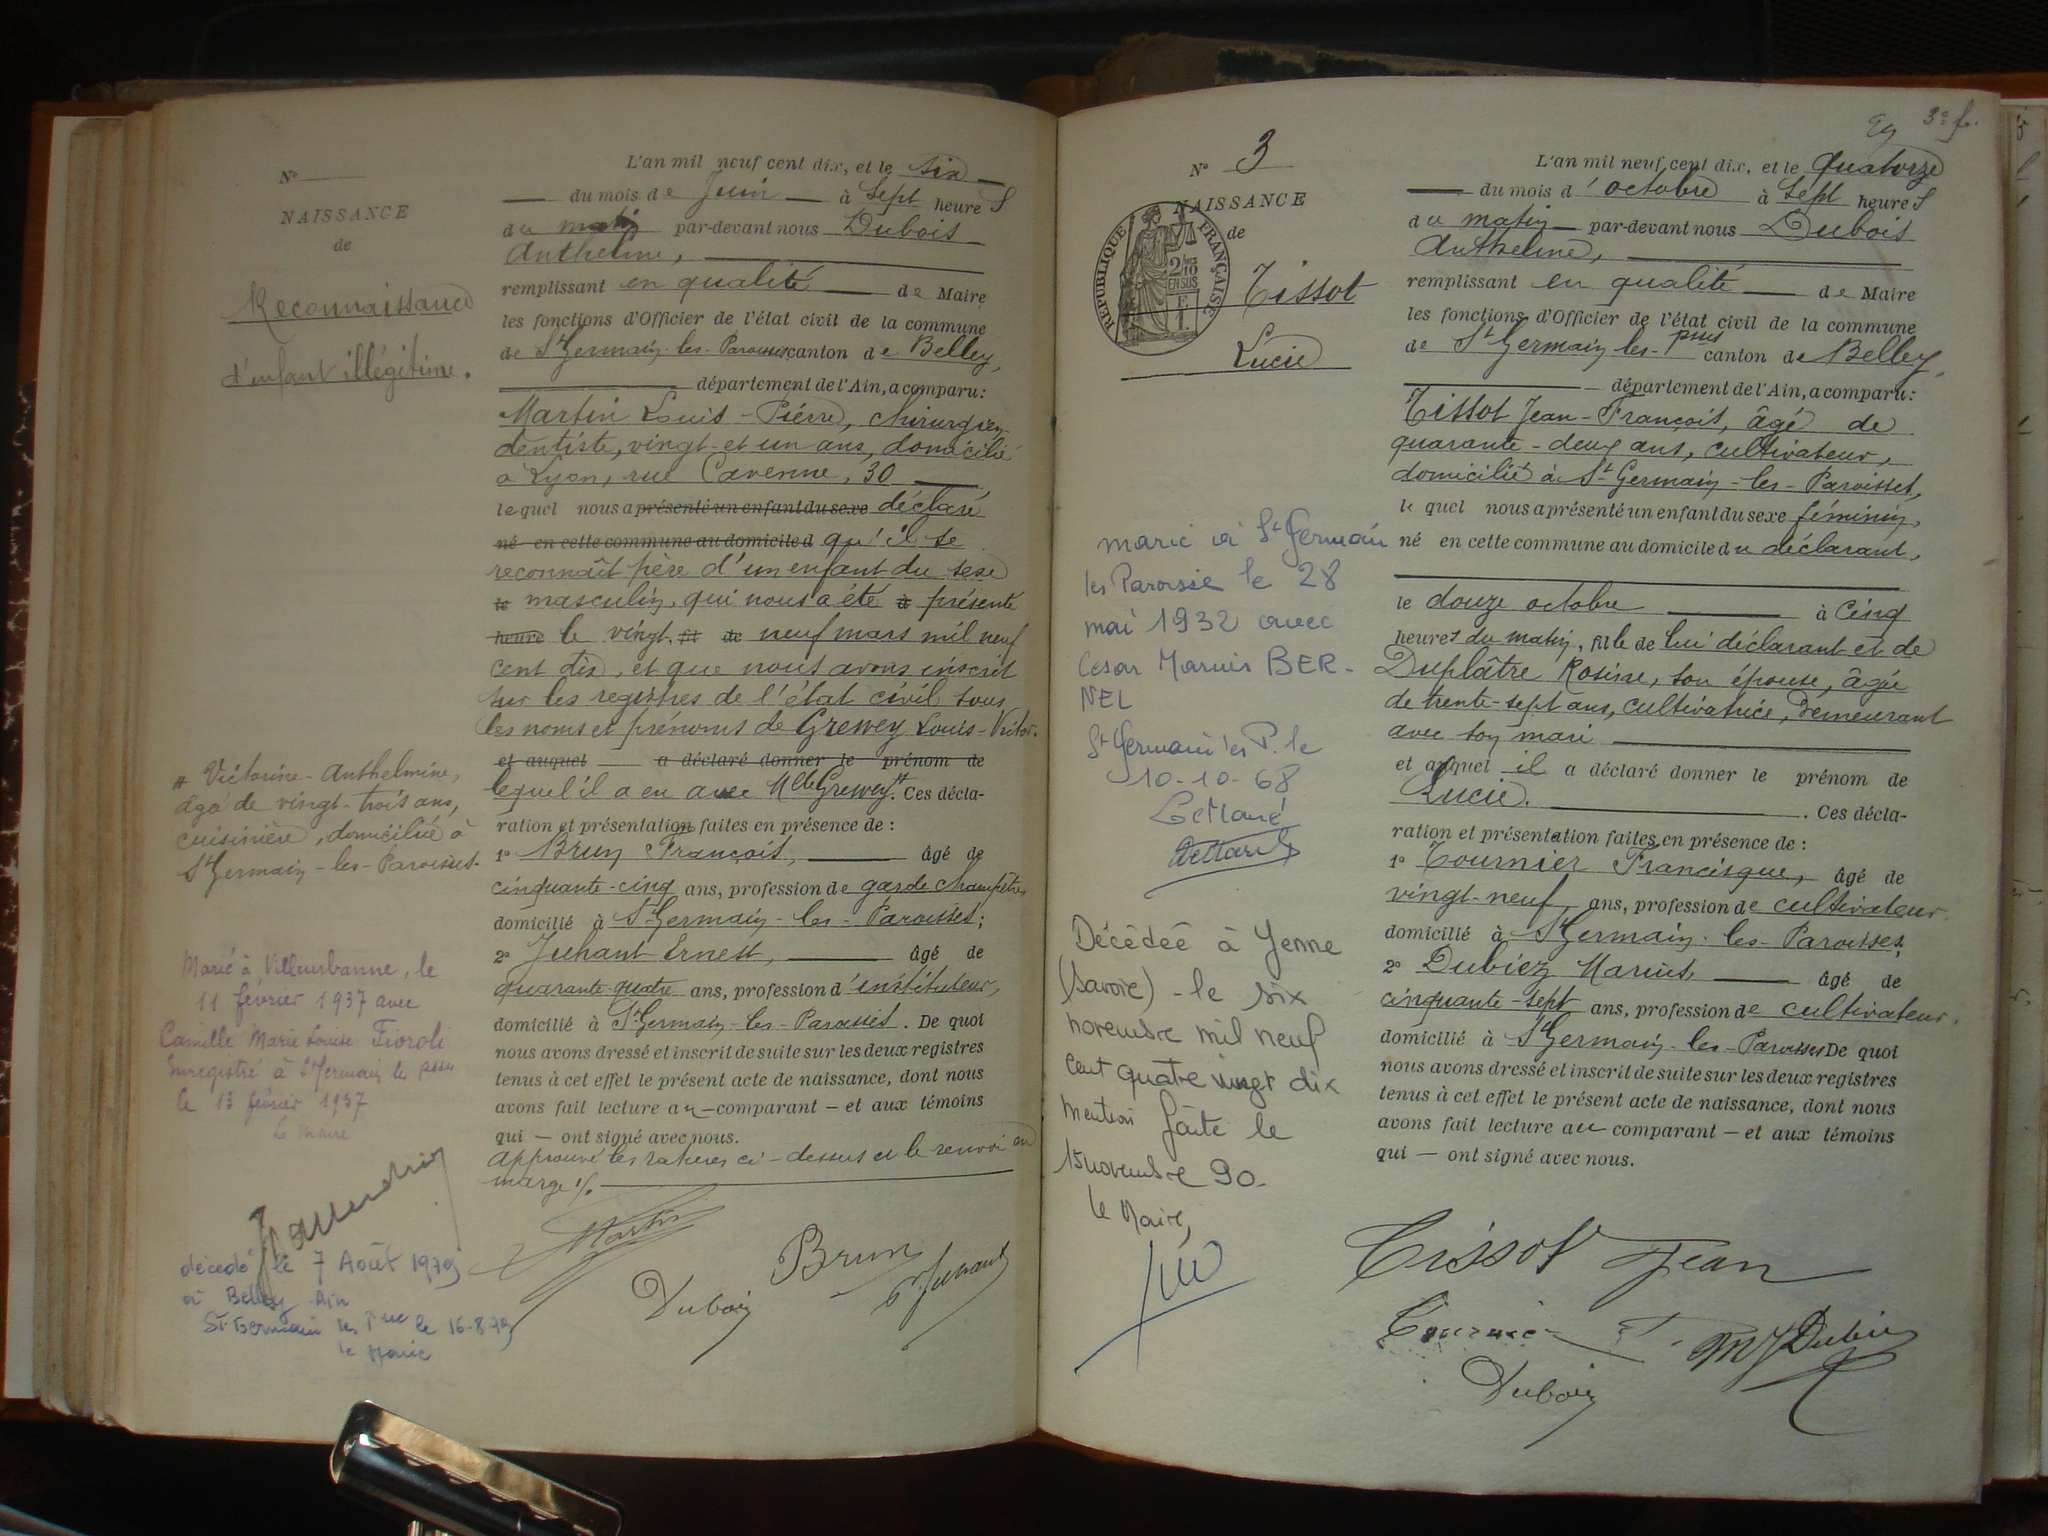 N°
NAISSANCE
de
Reconnaissance
d'enfant illégitime.
L'an mil neuf cent dix, et le six
du mois de Juin à Sept heures
du matin par-devant nous Dubois
Anthelme,
remplissant en qualité de Maire
les fonctions d'Officier de l'état civil de la commune
de St Germain-les-Paroisses canton de Belley,
département de l'Ain, a comparu:
Martin Louis-Pierre, chirurgien
dentiste, vingt-et un ans, domicilié
à Lyon, rue Cavenne, 30
lequel nous a présenté un enfant du sexe déclaré
né en cette commune au domicile d qu'il se
reconnaît père d'un enfant du sexe
le masculin, qui nous a été à présenté
heure le vingt fil de neuf mars mil neuf
cent dix, et que nous avons inscrit
sur les registres de l'état civil sous
les noms et prénoms de Grewey Louis-Victor.
et auquel a déclaré donner le prénom de
lequel il a eu avec Mlle Grewey #. Ces décla-
ration et présentation faites en présence de :
1° Brun François, âgé de
cinquante-cinq ans, profession de garde champêtre
domicilié à St Germain-les-Paroisses;
2° Juhant Ernest, âgé de
quarante-quatre ans, profession d'instituteur,
domicilié à St Germain-les-Paroisses. De quoi
nous avons dressé et inscrit de suite sur les deux registres
tenus à cet effet le présent acte de naissance, dont nous
avons fait lecture au comparant — et aux témoins
qui — ont signé avec nous.
Approuvé les ratures ci-dessus et le renvoi en
marge
Martin
Brun
Dubois
# Victorine-Anthelmine,
âgé de vingt-trois ans,
cuisinière, domiciliée à
St Germain-les-Paroisses.
Marié à Villeurbanne, le
11 février 1937 avec
Camille Marie Louise Fioroli
Enregistré à St Germain les psses
le 13 février 1937
Le Maire
décédé le 7 Août 1979
à Belley Ain
St Germain les le 16-8-79
le Maire
3e f.
N° 3
NAISSANCE
de
RÉPUBLIQUE FRANÇAISE
2/10 EN SUS
Tissot
Lucie
L'an mil neuf cent dix, et le quatorze
du mois d'octobre à sept heures
du matin par-devant nous Dubois
Anthelme,
remplissant en qualité de Maire
les fonctions d'Officier de l'état civil de la commune
de St Germain-les-Psses canton de Belley,
département de l'Ain, a comparu:
Tissot Jean-François, âgé de
quarante-deux ans, cultivateur,
domicilié à St Germain-les-Paroisses,
lequel nous a présenté un enfant du sexe féminin,
né en cette commune au domicile du déclarant,
le douze octobre à cinq
heures du matin, fille de lui déclarant et de
Duplâtre Rosine, son épouse, âgée
de trente-sept ans, cultivatrice, demeurant
avec son mari
et auquel il a déclaré donner le prénom de
Lucie. Ces décla-
ration et présentation faites en présence de :
1° Tournier Francisque, âgé de
vingt-neuf ans, profession de cultivateur
domicilié à St Germain-les-Paroisses,
2° Dubiez Marius, âgé de
cinquante-sept ans, profession de cultivateur.
domicilié à St Germain-les-Paroisses De quoi
nous avons dressé et inscrit de suite sur les deux registres
tenus à cet effet le présent acte de naissance, dont nous
avons fait lecture au comparant — et aux témoins
qui — ont signé avec nous.
Tissot Jean
Dubois
marié à St Germain
les Paroisse le 28
mai 1932 avec
Cesar Marius BER-
NEL
St Germain les P. le
10-10-68
Le Maire
Décédée à Yenne
(Savoie) - le six
novembre mil neuf
cent quatre vingt dix
mention faite le
15 novembre 90.
Le Maire,